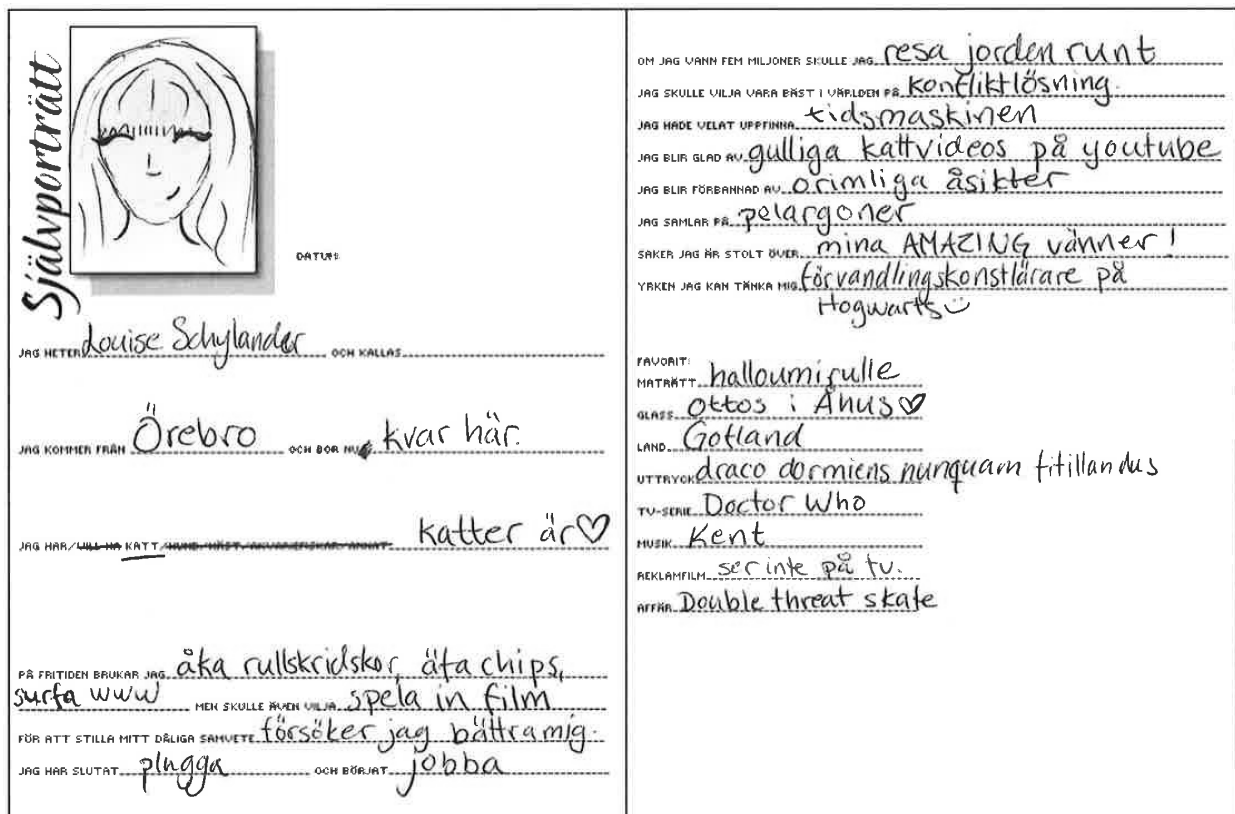 Självporträtt
DATUM:
JAG HETER Louise Schylander OCH KALLAS
JAG KOMMER FRÅN Örebro OCH BOR NU kvar här.
JAG HAR/VILL HA KATT/HUND/HÄST/AKVARIEFISKAR/ANNAT katter är ♡
PÅ FRITIDEN BRUKAR JAG åka rullskridskor, äta chips,
surfa www MEN SKULLE ÄVEN VILJA spela in film
FÖR ATT STILLA MITT DÅLIGA SAMVETE försöker jag bättra mig.
JAG HAR SLUTAT plugga OCH BÖRJAT jobba
OM JAG VANN FEM MILJONER SKULLE JAG resa jorden runt
JAG SKULLE VILJA VARA BÄST I VÄRLDEN PÅ konfliktlösning.
JAG HADE VELAT UPPFINNA tidsmaskinen
JAG BLIR GLAD AV gulliga kattvideos på youtube
JAG BLIR FÖRBANNAD AV orimliga åsikter
JAG SAMLAR PÅ pelargoner
SAKER JAG ÄR STOLT ÖVER mina AMAZING vänner!
YRKEN JAG KAN TÄNKA MIG förvandlingskonstlärare på
Hogwarts
FAVORIT:
MATRÄTT halloumirulle
GLASS Ottos i Åhus ♡
LAND Gotland
UTTRYCK draco dormiens nunquam titillandus
TV-SERIE Doctor Who
MUSIK Kent
REKLAMFILM ser inte på tv.
AFFÄR Double threat skate